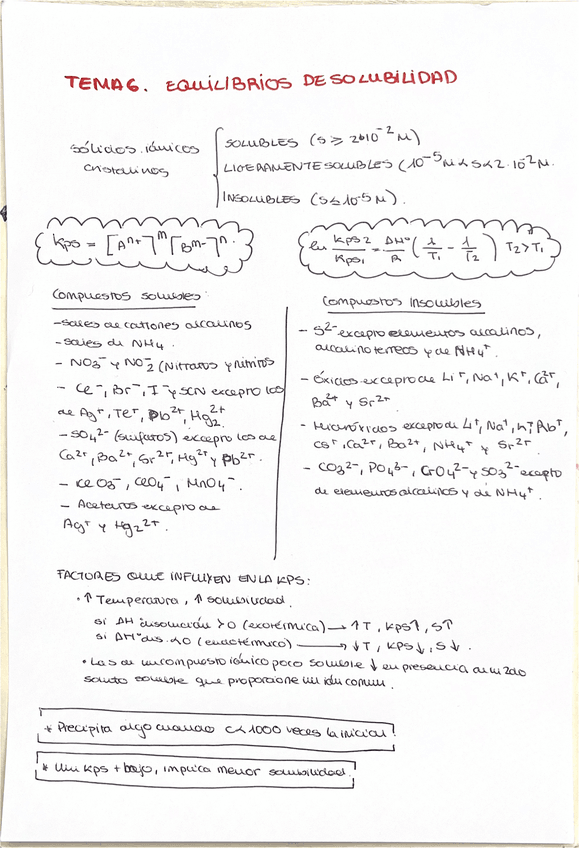 TEMA 6. EQUILIBRIOS DE SOLUBILIDAD
sólidos iónicos cristalinos
SOLUBLES (S ≥ 2·10⁻² M)
LIGERAMENTE SOLUBLES (10⁻⁵ M < S < 2·10⁻² M.
INSOLUBLES (S ≤ 10⁻⁵ M).
Kps = [Aⁿ⁺]ᵐ [Bᵐ⁻]ⁿ.
ln Kps2/Kps1 = ΔHº/R (1/T₁ - 1/T₂) T₂>T₁
Compuestos solubles
-sales de cationes alcalinos
-sales de NH₄.
- NO₃⁻ y NO₂⁻ (Nitratos y nitritos
- Cl⁻, Br⁻, I⁻ y SCN excepto los
de Ag⁺, Te⁺, Pb²⁺, Hg₂²⁺
-SO₄²⁻ (sulfatos) excepto los de
Ca²⁺, Ba²⁺, Sr²⁺, Hg²⁺ y Pb²⁺.
- ClO₃⁻, ClO₄⁻, MnO₄⁻.
- Acetatos excepto de
Ag⁺ y Hg₂²⁺.
Compuestos Insolubles
- S²⁻ excepto elementos alcalinos,
alcalinoterreos y de NH₄⁺.
- óxidos excepto de Li⁺, Na⁺, K⁺, Ca²⁺,
Ba²⁺ y Sr²⁺
- Hidróxidos excepto di Li⁺, Na⁺, K⁺, Rb⁺,
Cs⁺, Ca²⁺, Ba²⁺, NH₄⁺ y Sr²⁺.
- CO₃²⁻, PO₄³⁻, CrO₄²⁻ y SO₃²⁻ excepto
de elementos alcalinos y de NH₄⁺.
FACTORES QUE INFLUYEN EN LA KPS:
· ↑ Temperatura, ↑ solubilidad.
si ΔH disolución >0 (exotérmica) → ↑T, Kps↑, S↑
si ΔHº dis. <0 (endotérmico) → ↓T, Kps↓, S↓.
• La s de un compuesto iónico poco soluble ↓ en presencia de un 2do
soluto soluble que proporcione un ión comun.
* Precipita algo cuando c < 1000 veces la inicial!
* Un Kps + bajo, implica menor solubilidad.